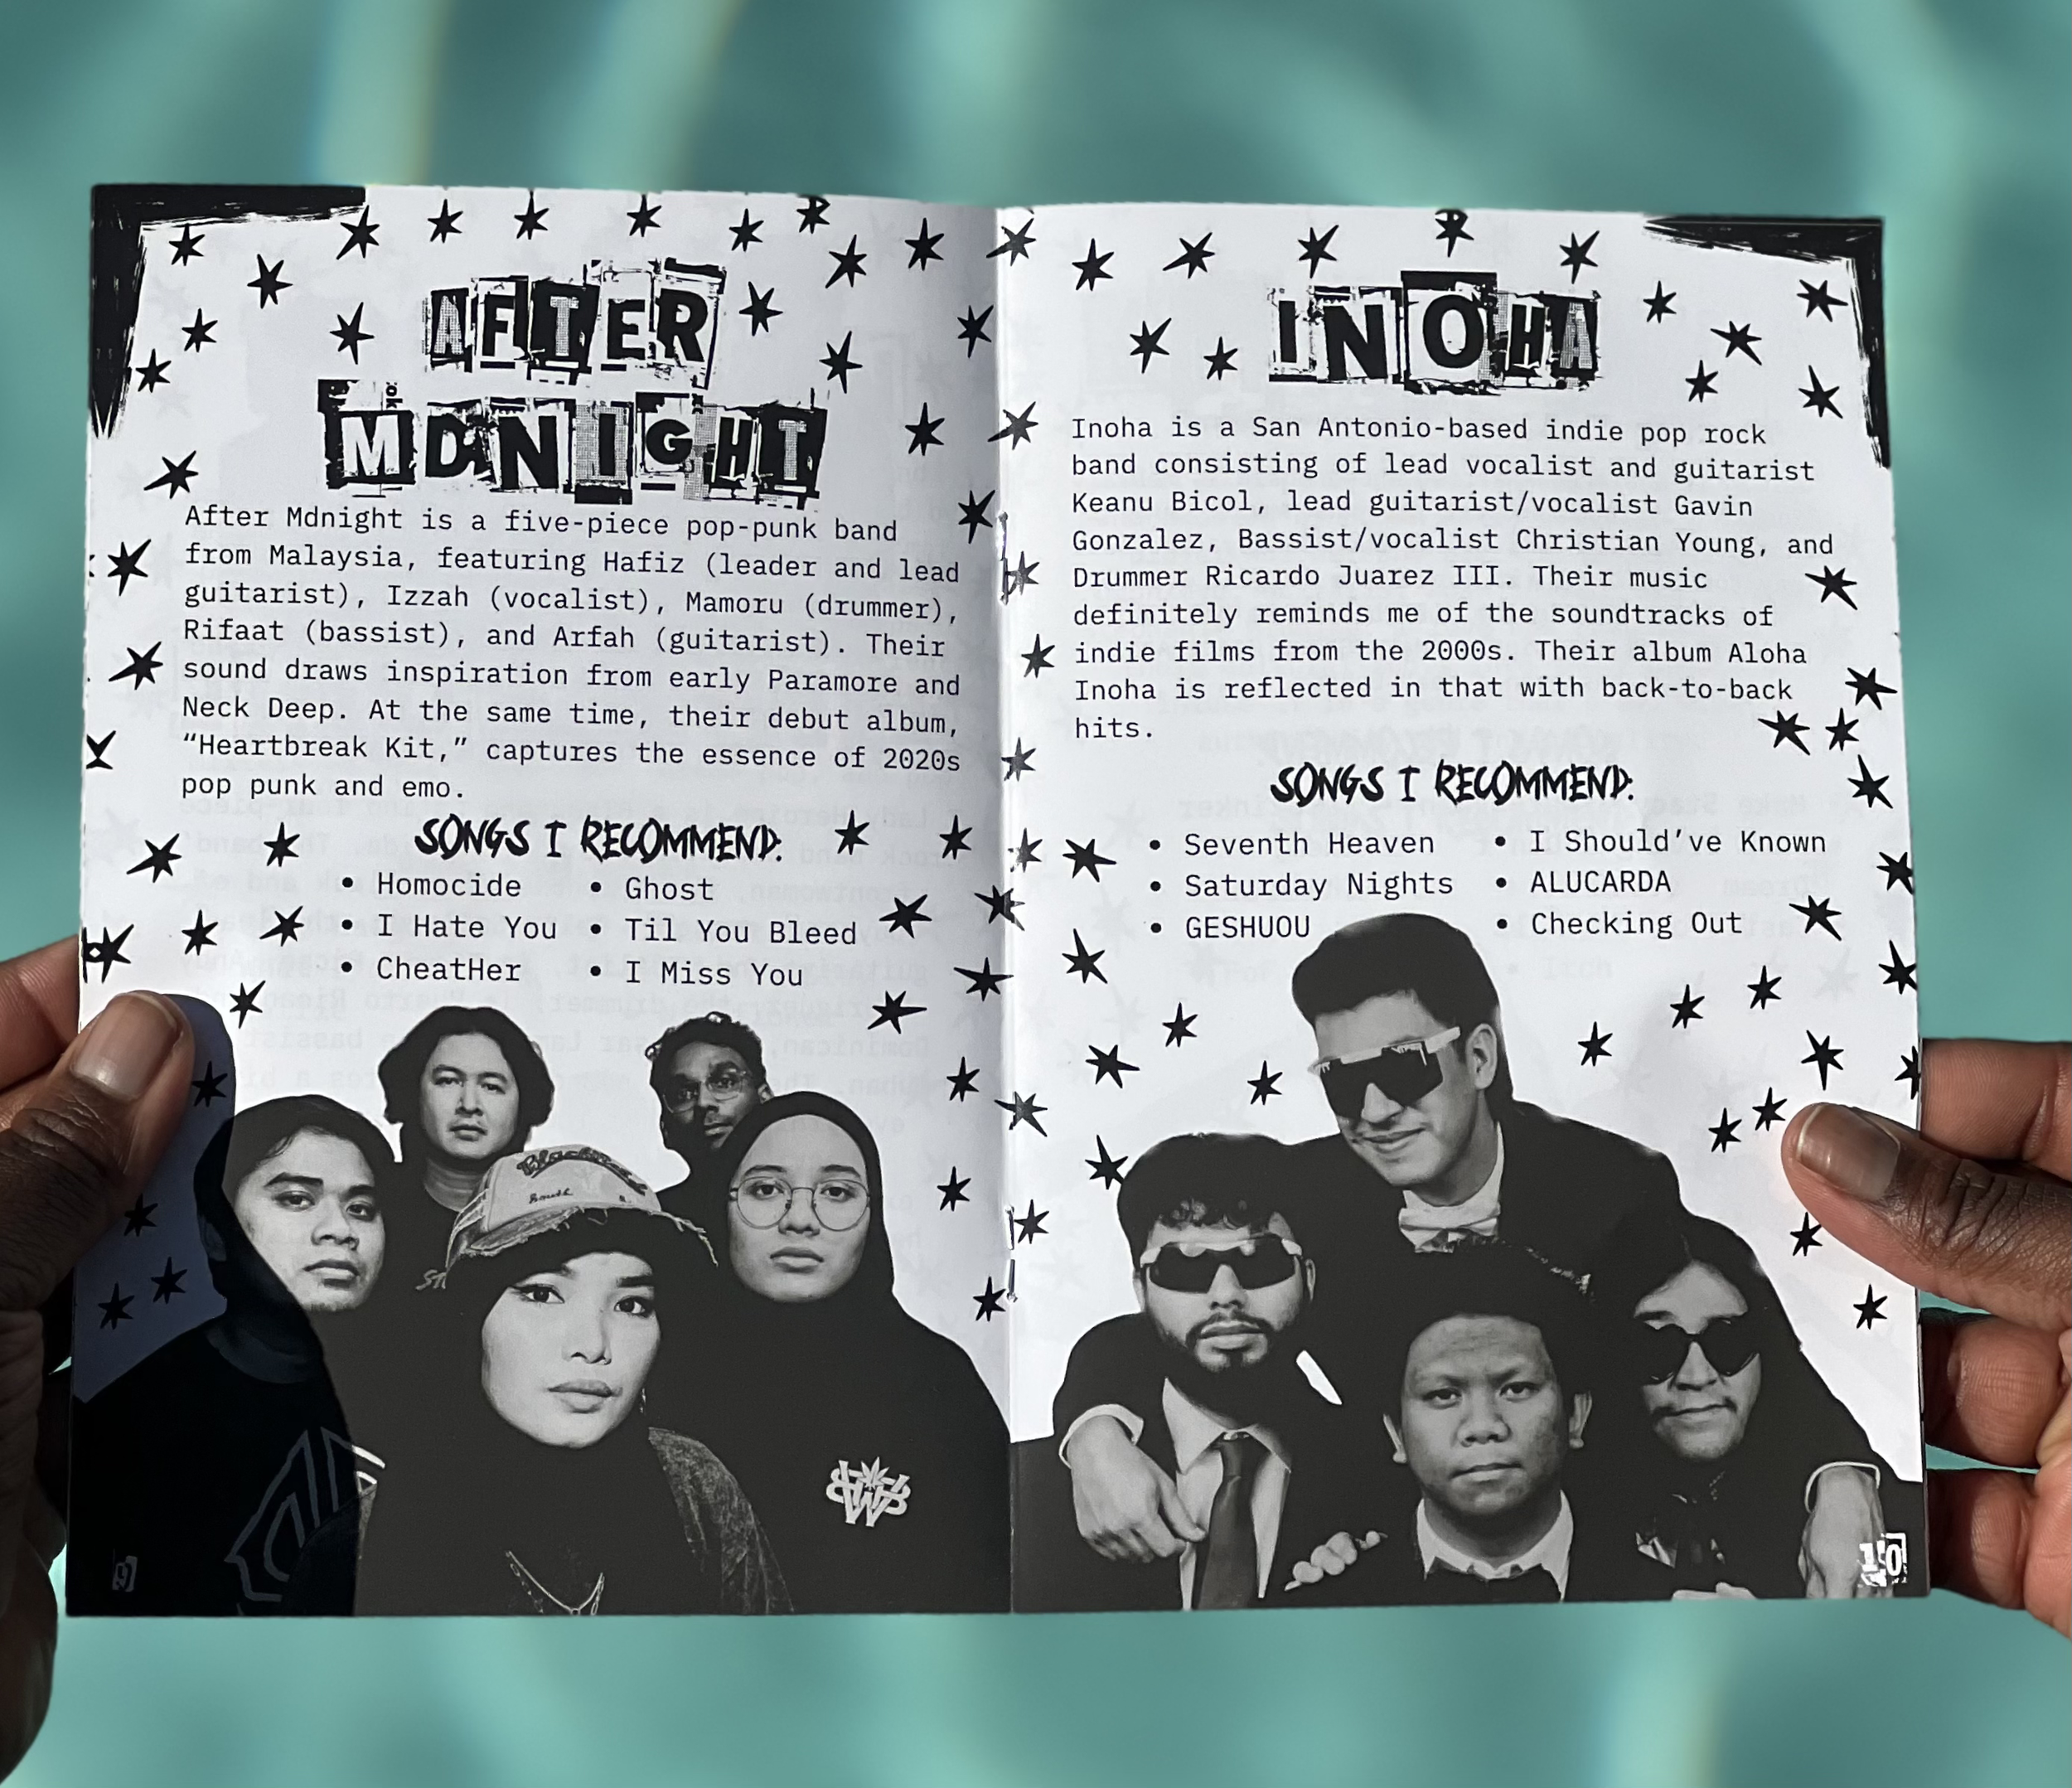 AFTER
MDNIGHT
After Mdnight is a five-piece pop-punk band
from Malaysia, featuring Hafiz (leader and lead
guitarist), Izzah (vocalist), Mamoru (drummer),
Rifaat (bassist), and Arfah (guitarist). Their
sound draws inspiration from early Paramore and
Neck Deep. At the same time, their debut album,
“Heartbreak Kit,” captures the essence of 2020s
pop punk and emo.
SONGS I RECOMMEND:
• Homocide
• I Hate You
• CheatHer
• Ghost
• Til You Bleed
• I Miss You
9
INOHA
Inoha is a San Antonio-based indie pop rock
band consisting of lead vocalist and guitarist
Keanu Bicol, lead guitarist/vocalist Gavin
Gonzalez, Bassist/vocalist Christian Young, and
Drummer Ricardo Juarez III. Their music
definitely reminds me of the soundtracks of
indie films from the 2000s. Their album Aloha
Inoha is reflected in that with back-to-back
hits.
SONGS I RECOMMEND:
• Seventh Heaven
• Saturday Nights
• GESHUOU
• I Should’ve Known
• ALUCARDA
• Checking Out
10